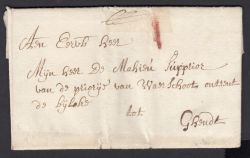 Aen Eerw heer
Mijn heer De Mahieu Supprior
van de priorije van Waerschoots ontrent
de Bijloke
tot
Ghendt